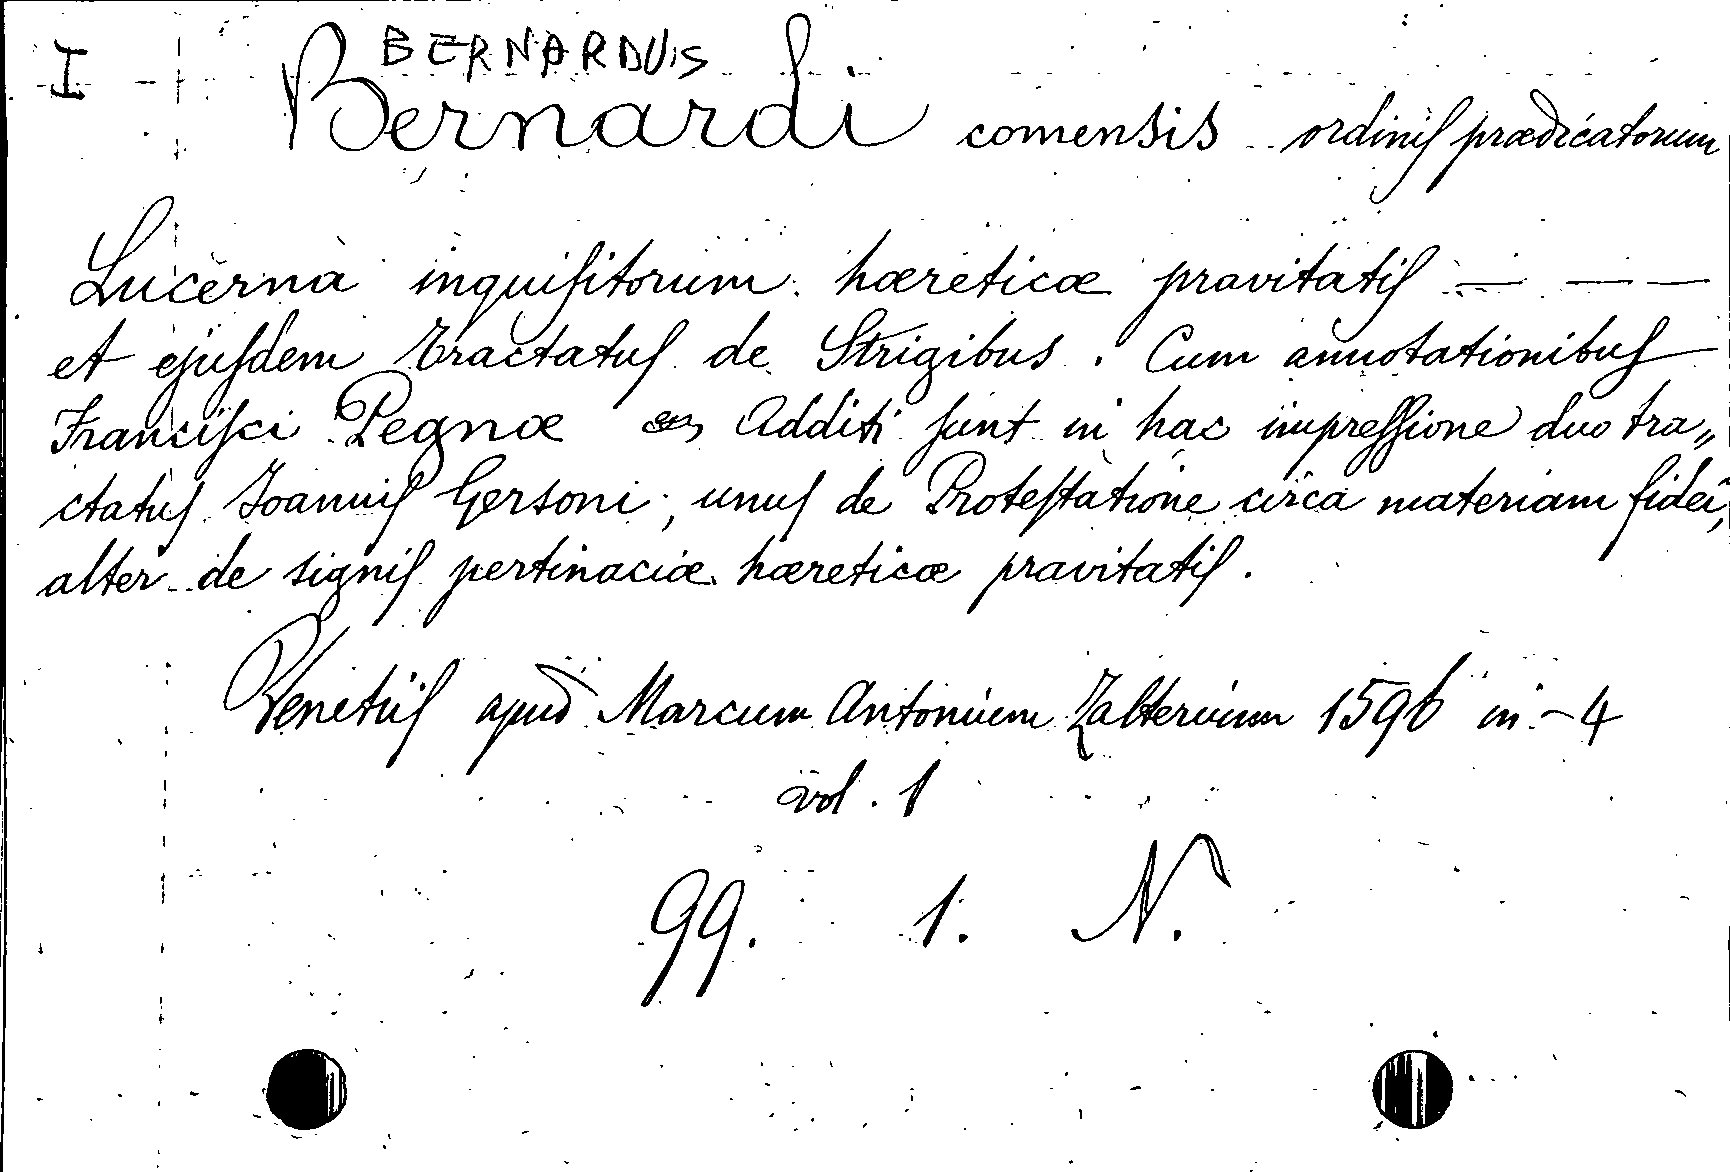 I
BERNARDUS
Bernardi comensis ordinis prædicatorum
Lucerna inquisitorum hæreticæ pravitatis — — —
et ejusdem tractatus de Strigibus. Cum annotationibus
Francisci Pegnæ Additi sunt in hac impressione duo tra„
ctatus Joannis Gersoni, unus de Protestatione circa materiam fidei,
alter de signis pertinaciæ hæreticæ pravitatis.
Venetiis apud Marcum Antonium Zalterium 1596 in-4
vol. 1
99. 1. N.